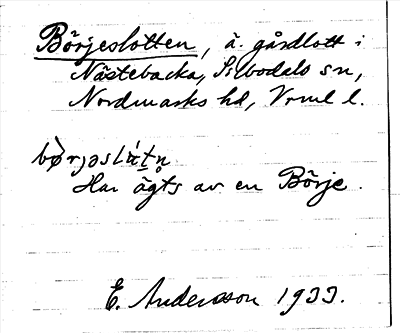 Börjeslotten, ä. gårdlott i
Nästebacka, Silbodals sn,
Nordmarks hd, Vrml l.
Har ägts av en Börje.
E. Andersson 1933.